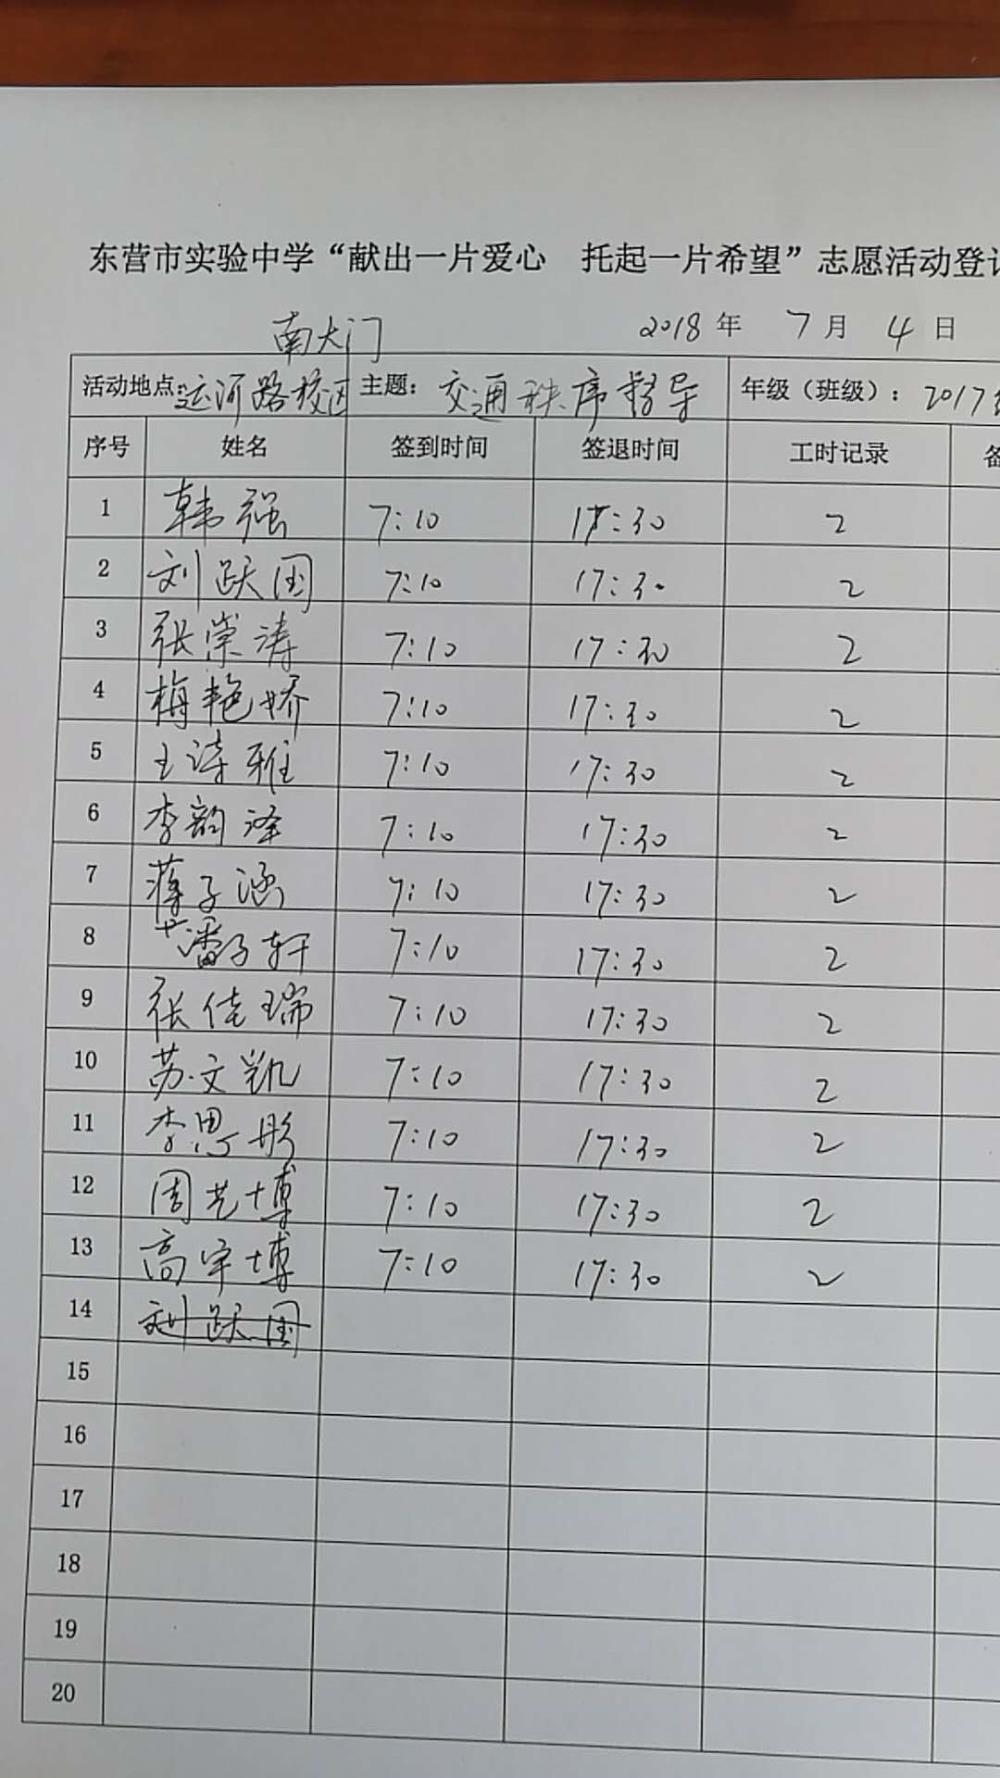 东营市实验中学“献出一片爱心 托起一片希望”志愿活动登
南大门 2018年 7月 4日
活动地点:运河路校区 主题: 交通秩序督导 年级（班级）: 2017
序号 姓名 签到时间 签退时间 工时记录
1 韩强 7:10 17:30 2
2 刘跃国 7:10 17:30 2
3 张崇涛 7:10 17:30 2
4 梅艳娇 7:10 17:30 2
5 王诗雅 7:10 17:30 2
6 李韵泽 7:10 17:30 2
7 蒋子涵 7:10 17:30 2
8 潘子轩 7:10 17:30 2
9 张佳瑞 7:10 17:30 2
10 苏文凯 7:10 17:30 2
11 李思彤 7:10 17:30 2
12 周艺博 7:10 17:30 2
13 高宇博 7:10 17:30 2
14 刘跃国
15
16
17
18
19
20